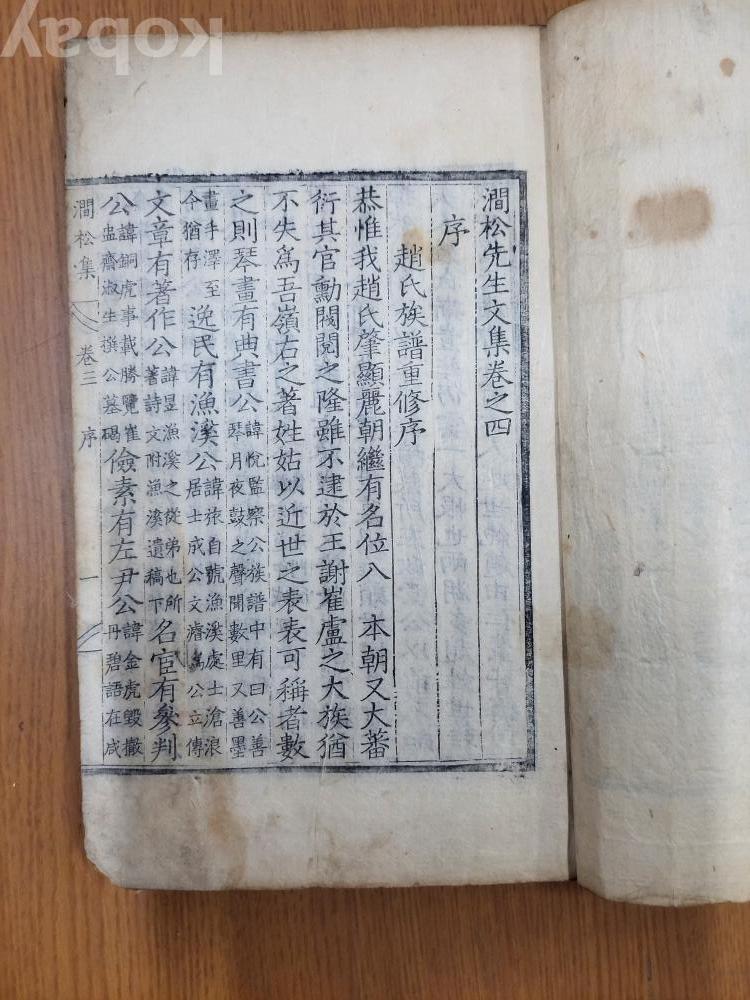 澗松先生文集卷之四
序
趙氏族譜重修序
恭惟我趙氏肇顯麗朝繼有名位入 本朝又大蕃
衍其官勳閥閱之隆雖不逮於王謝崔盧之大族猶
不失爲吾嶺右之著姓姑以近世之表表可稱者數
之則琴畫有典書公諱悅監察公族譜中有曰公善琴月夜鼓之聲聞數里又善墨
畫手澤至今猶存逸民有漁溪公諱旅自號漁溪處士滄浪居士成公文濬爲公立傳
文章有著作公諱昱漁溪之從弟也所著詩文附漁溪遺稿下名宦有參判
公諱銅虎事載勝覽崔盅齋淑生撰公墓碣儉素有左尹公諱金虎毀撤丹碧語在咸
澗松集 卷三 序 一
kobay